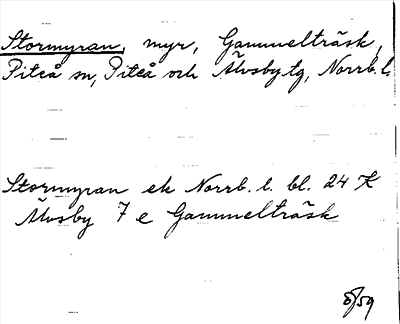 Stormyran, myr, Gammelträsk,
Piteå sn, Piteå och Älvsby tg, Norrb. l.
Stormyran ek Norrb. l. bl. 24 K
Älvsby 7 e Gammelträsk
8/59